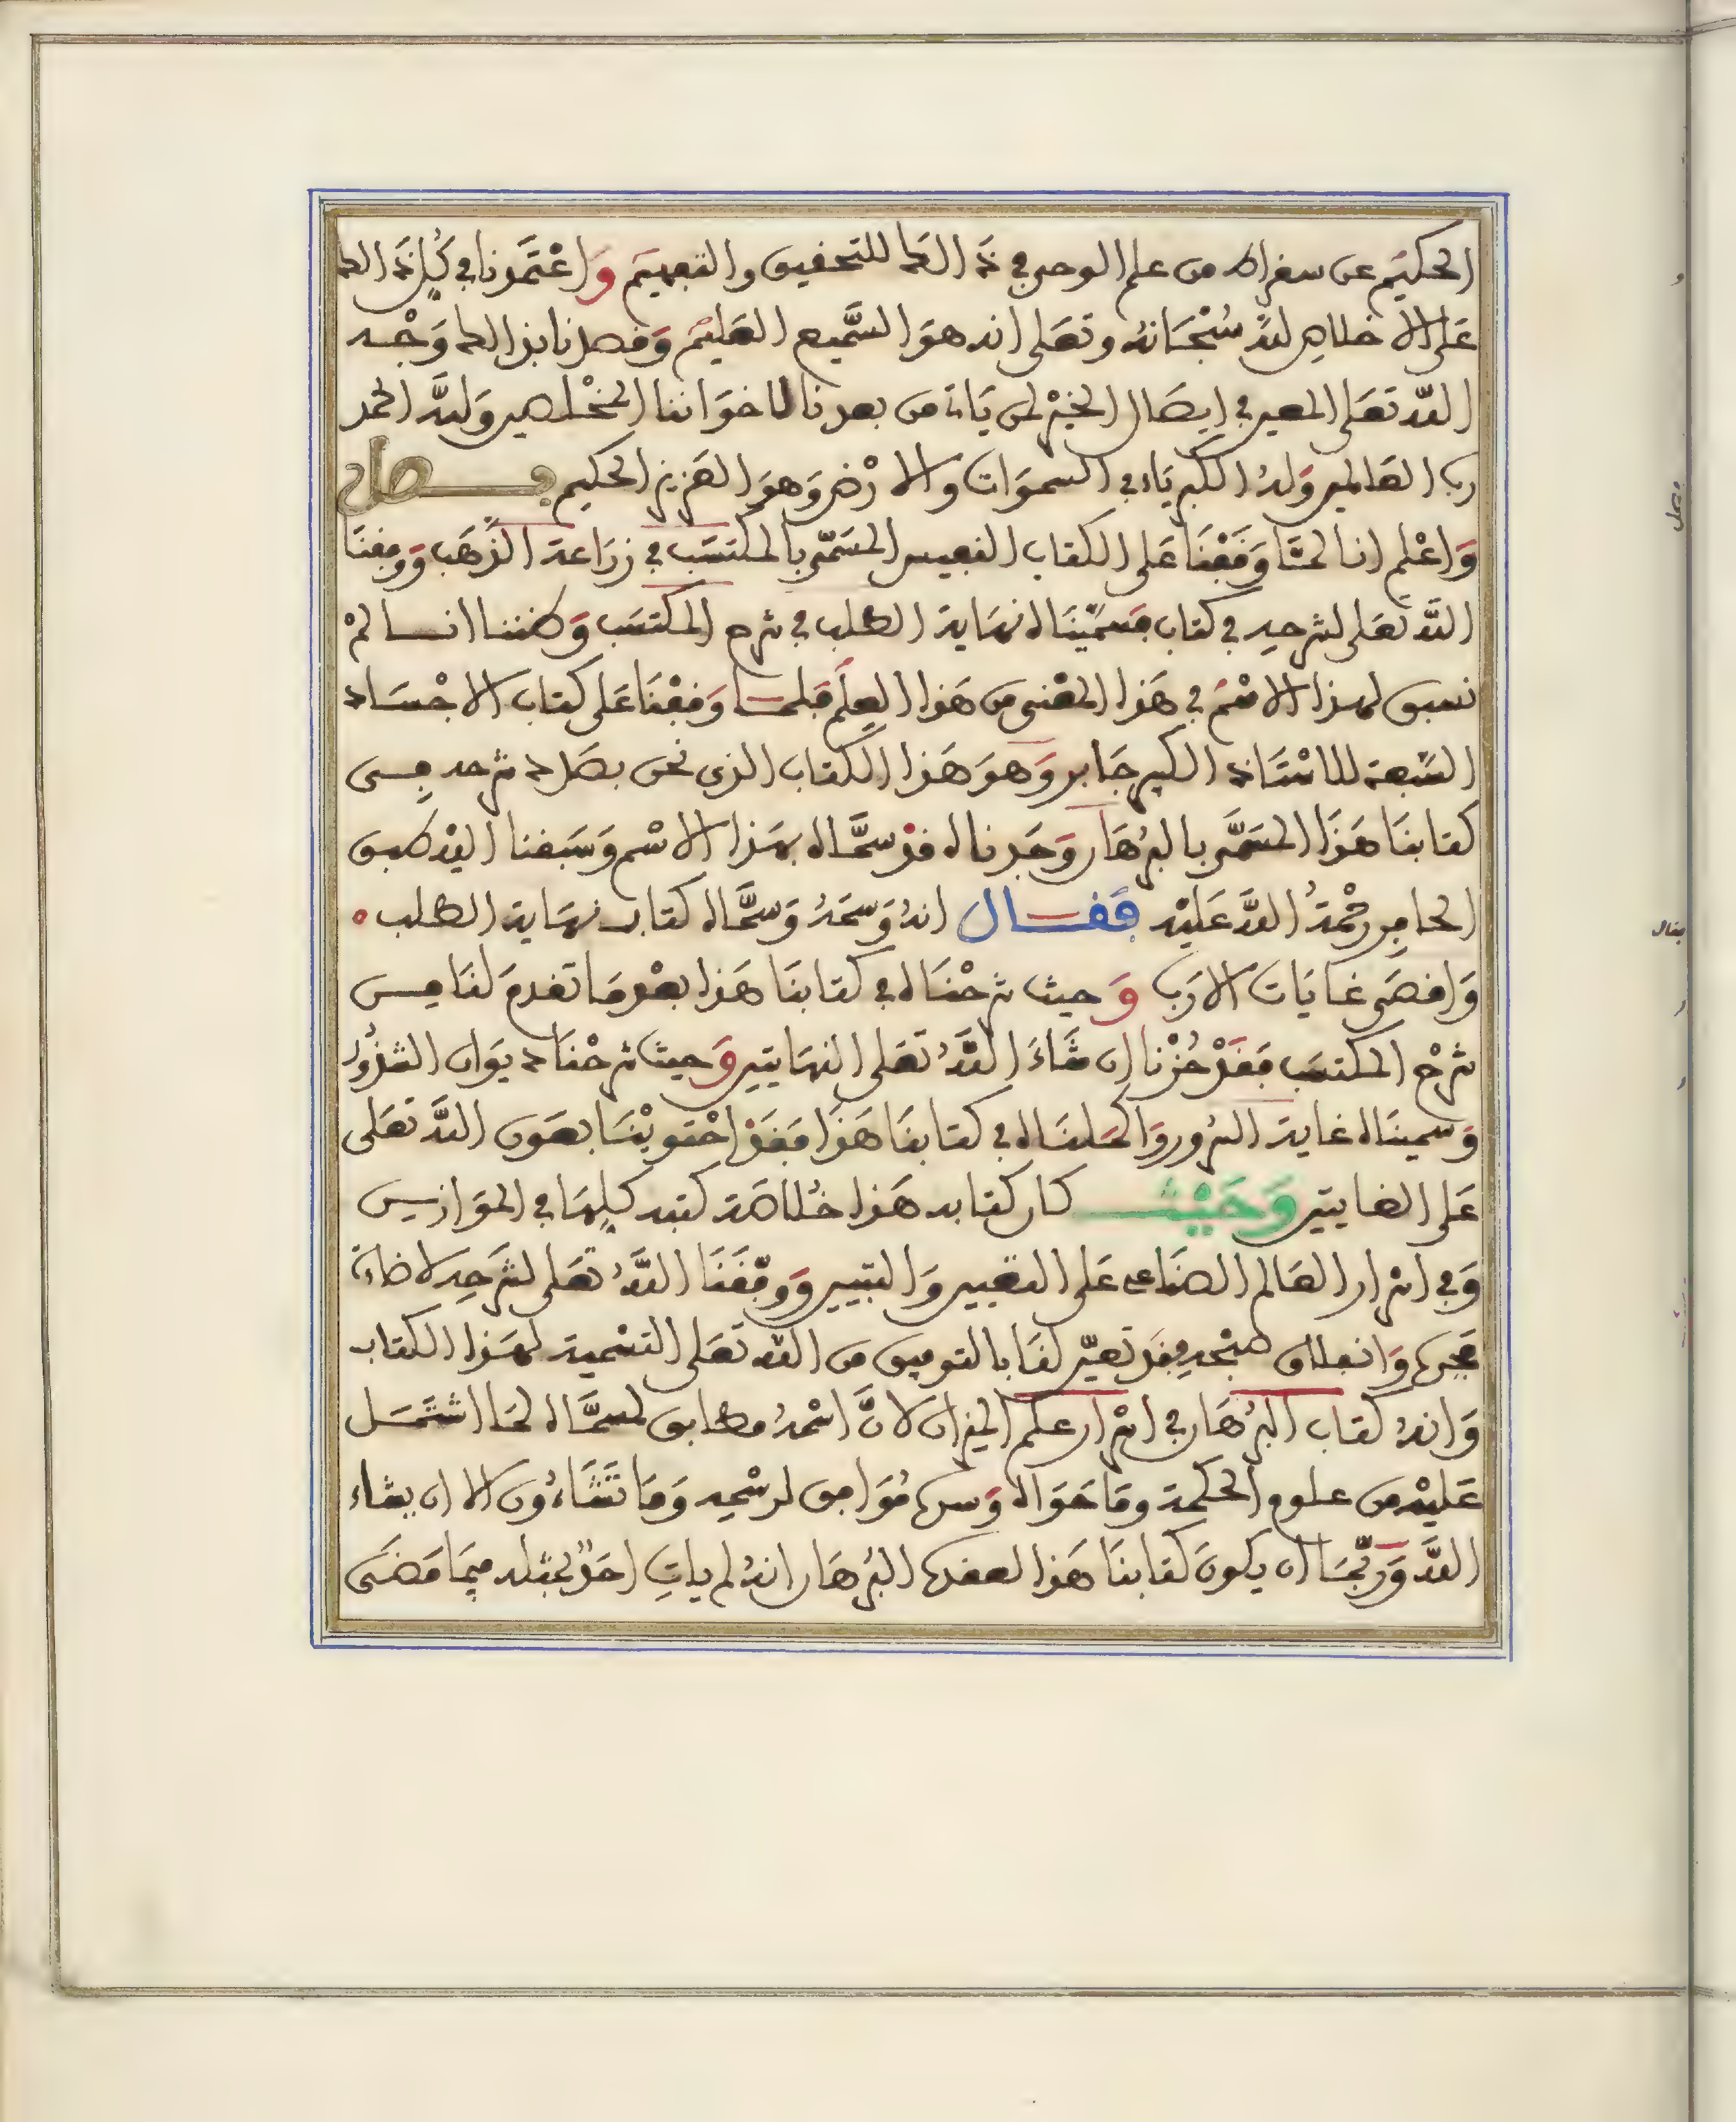 الحكيم عن سقراط من علم الوحي في ذلك للتحقيق والتفهيم وَاعْتَمَدنا في كُلِّ ذلك
عَلى الاخلاص للهِ سُبْحَانهُ وتعَلى انه هوَ السَّميع العَليمُ وَقصدنا بذالك وَجْه
اللهِ تعَلى المعين في ايصَال الخيْر لمن يَات من بعدنا لاخوَاننا المخْلصين وَللهِ الحمد
رب العَالمين وَلهُ الكبريَاء في السموَات والارْض وَهوَ العَزيز الحكيم فصل
وَاعْلم انا لمَّا وَقَفْنَا عَلى الكتاب النفيس المسَمّى بالمكتسَب في زرَاعة الذهَب وَوفقنَا
اللهُ تعَلى لشرحهِ في كتاب فسَمّيْنَاه نهَاية الطلب في شرح المكتسَب وَظننا انا لمْ
نسبق لهذا الاسْم في هَذا المعْنى من هَذا العِلم فلما وَقفْنَا عَلى كتاب الاجْسَاد
السّبعة للاسْتَاذ الكبير جَابر وَهوَ هَذا الكتاب الذي نحن بصَدد شرحه في
كتابنَا هَذَا المسَمَّى بالبرْهَان وَجَدناه قدْ سمَّاه بهَذا الاسْم وَسَبقنا اليْه طبق
الحافر رحْمَةُ اللهِ عَليْه فقال انهُ وَسمَهُ وَسمَّاه كتاب نهَاية الطلب
وَاقصَى غايَات الارَب وَحيث شرحْنَاه في كتابنَا هَذا بعْد مَا تقدمَ لنَا من
شرْح المكتسَب فقَدْ حُزْنا ان شَاءَ اللهُ تعَلى النهَايتين وَحيث شرحْنا ديوَان الشذُور
وَسمينَاه غاية السُّرور وَاكملنَاه في كتابنَا هَذَا فقَدْ احْتويْنَا بعَون اللهِ تعَلى
عَلى الغَايتين وَحَيْث كان كتابه هَذا خلاصَة كتبه كلِّهَا في الموَازين
وَفي اسْرار العَالم الصنَاعي عَلى التعيين وَالتبيين وَوفّقَنَا اللهُ تعَلى لشرَحِه لاضاءة
فجره وَانفلاق صُبْحه فقَد تعَيّن لنَا بالتوفيق من اللهِ تعَلى التسْمية لهَذا الكتاب
وَانهُ كتاب البرْهَان في اسْرار علم الميزان لانَّ اسْمهُ مطابق لمسمَّاه لمَا اشتمَل
عَليْه من علوم الحكمة ومَا حَوَاه وَسره مُوَافق لرسْمه وَمَا تَشَاءُون الا ان يشاء
اللهُ وَربّمَا ان يكونَ كتابنَا هَذا البرْهَان انهُ لم ياتِ احَدٌ بمثله فيمَا مَضَى